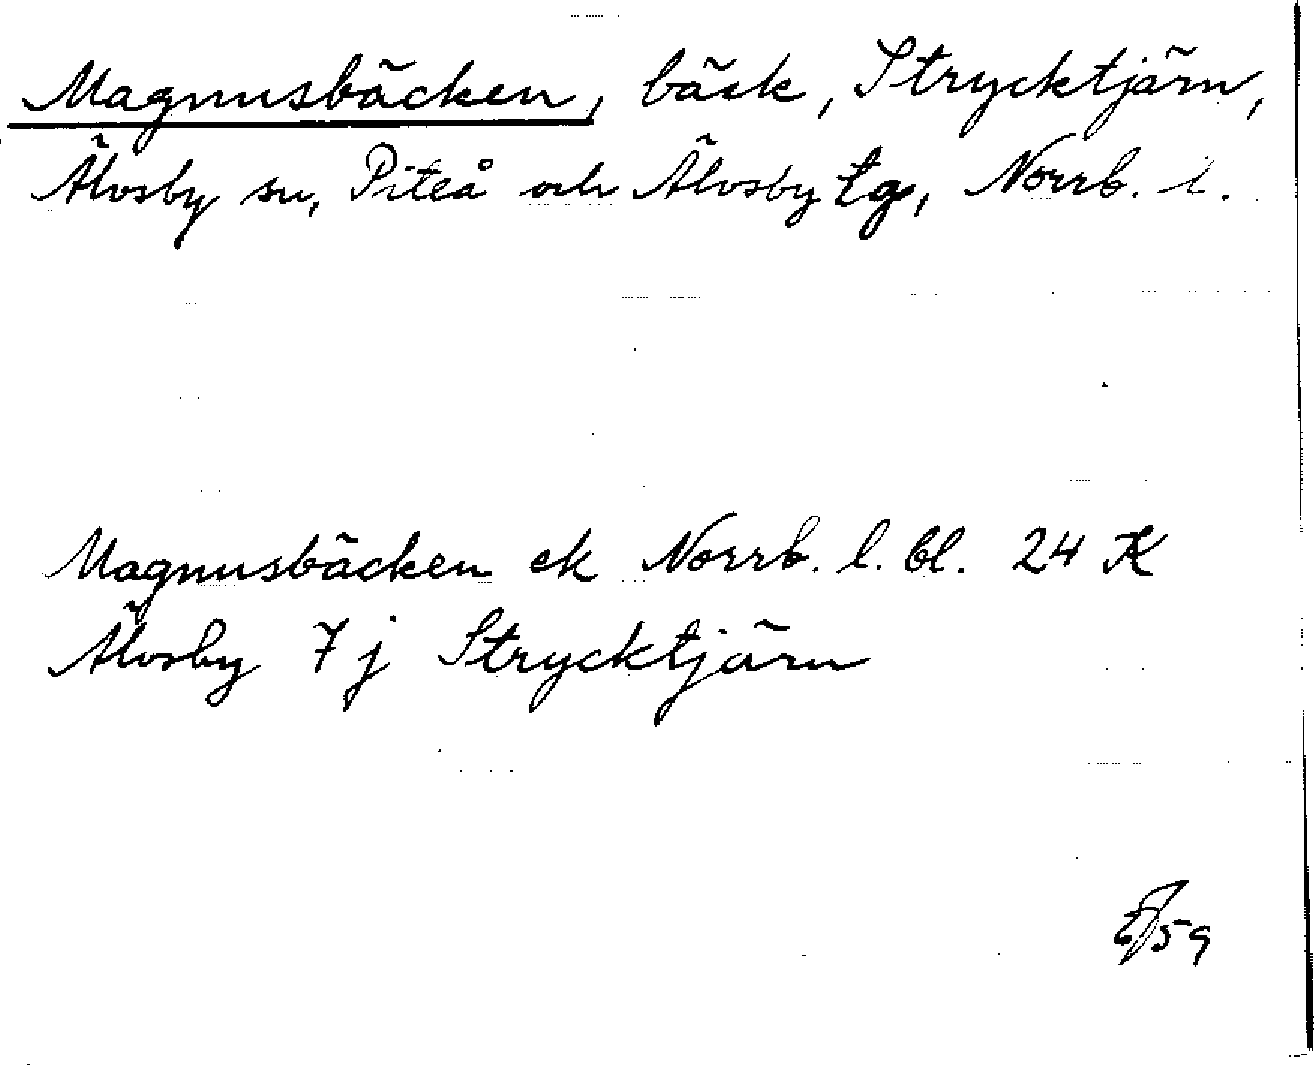 Magnusbäcken, bäck, Strycktjärn,
Älvsby sn, Piteå och Älvsby tg, Norrb. l.
Magnusbäcken ek Norrb. l. bl. 24 K
Älvsby 7 j Strycktjärn
59